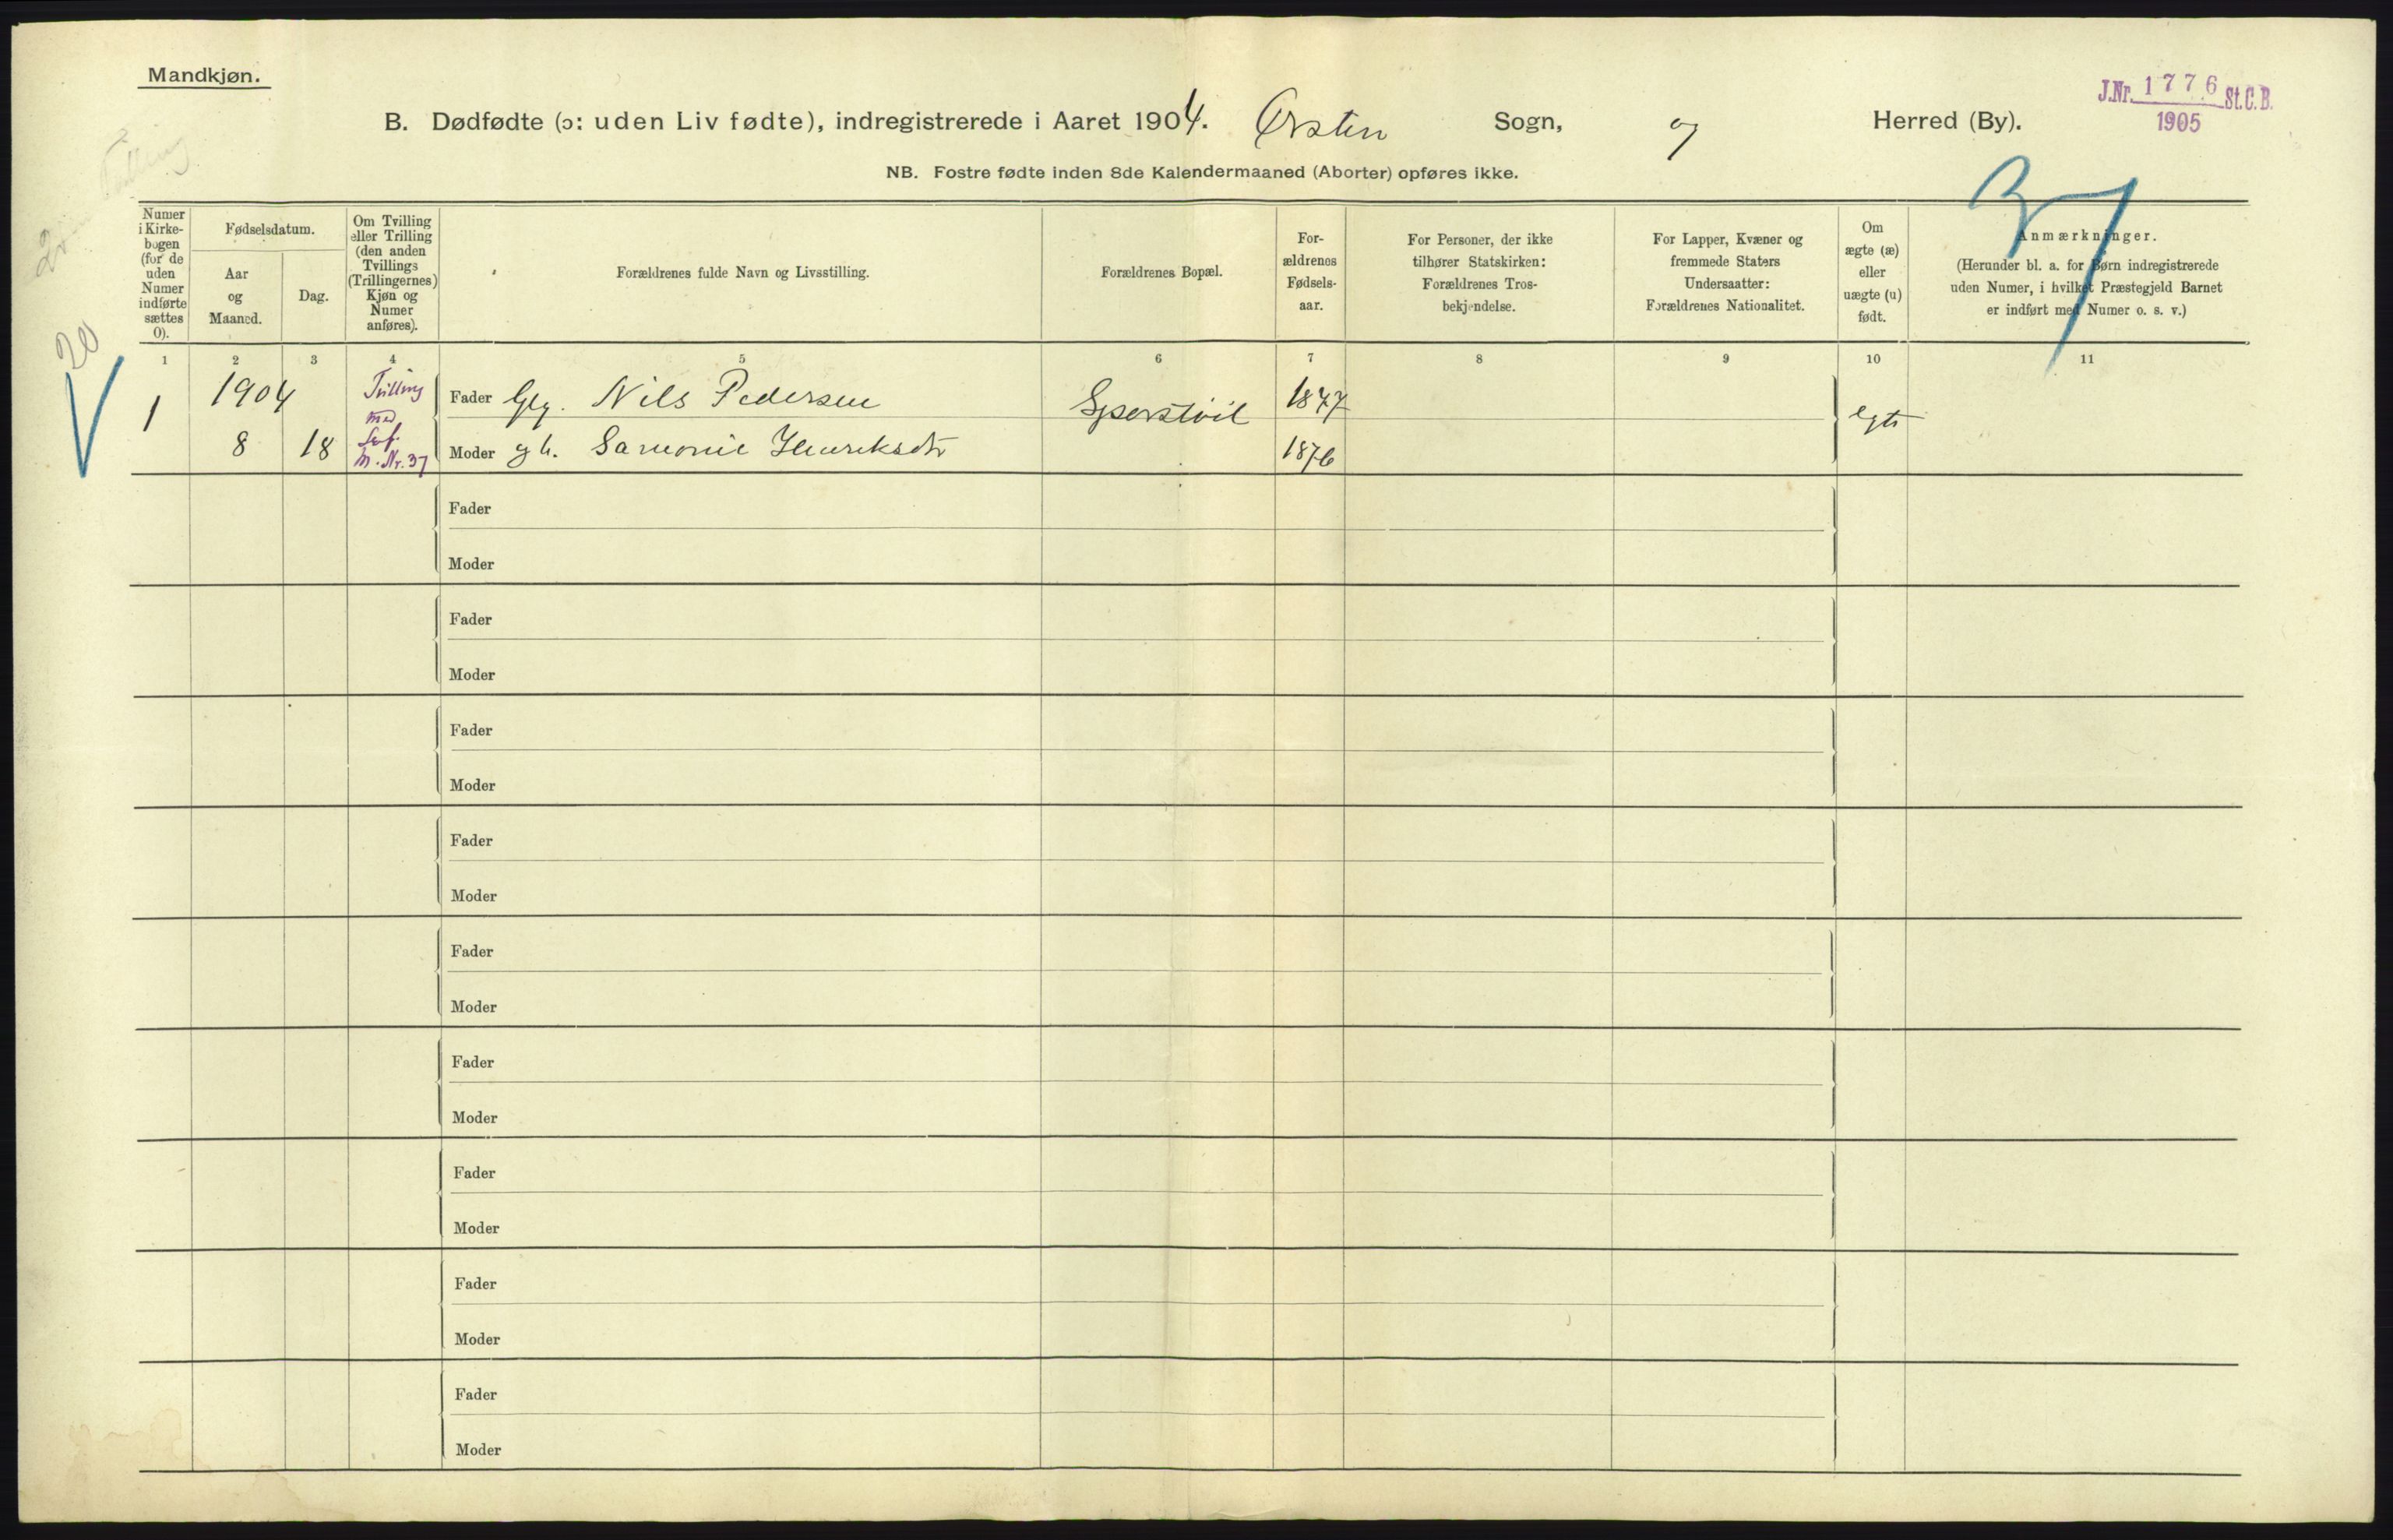 Mandkjøn.
J.Nr. 1776 St.C.B.
1905
B. Dødfødte (ɔ: uden Liv fødte), indregistrerede i Aaret 1904. Ørsten Sogn, og Herred (By).
NB. Fostre fødte inden 8de Kalendermaaned (Aborter) opføres ikke.
Numer
i Kirke-
bogen
(for de
uden
Numer
indførte
sættes
0).
Fødselsdatum.
Aar
og
Maaned.
Dag.
Om Tvilling
eller Trilling
(den anden
Tvillings
(Trillingernes)
Kjøn og
Numer
anføres).
Forældrenes fulde Navn og Livsstilling.
Forældrenes Bopæl.
For-
ældrenes
Fødsels-
aar.
For Personer, der ikke
tilhører Statskirken:
Forældrenes Tros-
bekjendelse.
For Lapper, Kvæner og
fremmede Staters
Undersaatter:
Forældrenes Nationalitet.
Om
ægte (æ)
eller
uægte (u)
født.
Anmærkninger.
(Herunder bl. a. for Børn indregistrerede
uden Numer, i hvilket Præstegjeld Barnet
er indført med Numer o. s. v.)
1 2 3 4 5 6 7 8 9 10 11
20
1
1904
8 18
Tvilling
med
Lev.f.
M. Nr. 37
Fader Gbr. Nils Pedersen
Moder gh. Samonie Henriksdtr
1847
1876
egte
Fader
Moder
Fader
Moder
Fader
Moder
Fader
Moder
Fader
Moder
Fader
Moder
Fader
Moder
Fader
Moder
Fader
Moder